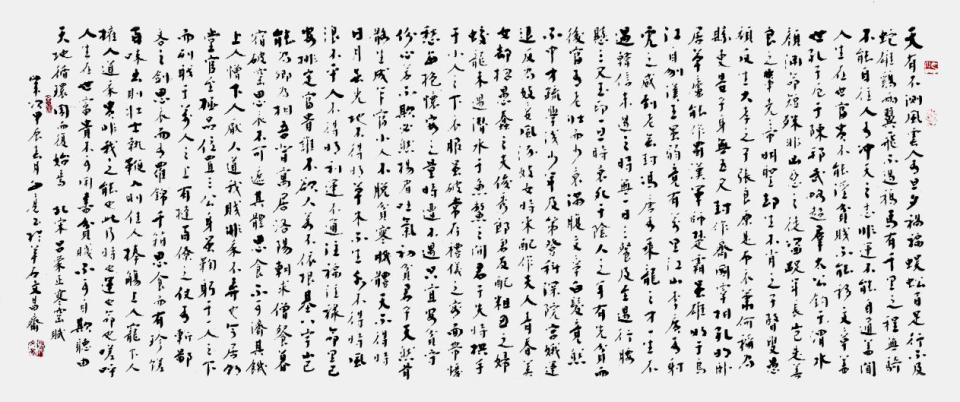 天有不測風雲人有旦夕禍福蜈蚣百足行不及
蛇雄鷄兩翼飛不過鴉馬有千里之程無騎
不能自往人有冲天之志非運不能自通蓋聞
人生在世富貴不能淫貧賤不能移文章蓋
世孔子厄于陳邦武略超羣太公釣于渭水
顔淵命短殊非凶惡之徒盜跖年長豈是善
良之輩堯帝明聖卻生不肖之子瞽叟愚
頑反生大孝之子張良原是布衣蕭何稱為
縣吏晏子身無五尺封作齊國宰相孔明卧
居草廬能作蜀漢軍師楚霸雖雄敗于烏
江自刎漢王雖弱竟有萬里江山李廣有射
虎之威到老無封馮唐有乘龍之才一生不
遇韓信未遇之時無一日三餐及至遇行腰
懸三尺玉印一旦時衰死于陰人之手有先貧而
後富有老壯而少衰滿腹文章白髮竟然
不中才疏學淺少年及第登科深院宮娥運
退反為妓妾風流妓女時來配作夫人青春美
女卻招愚蠢之夫俊秀郎君反配粗丑之婦
蛟龍未遇潛水于魚鱉之間君子失時拱手
于小人之下衣服雖破常存禮儀之容面帶憂
愁每抱懷安之量時遭不遇只宜安貧守
份心若不欺必然揚眉吐氣初貧君子天然骨
骼生成乍富小人不脱貧寒肌體天不得時
日月無光地不得時草木不生水不得時風
浪不平人不得時利運不通注福注祿命里已
安排定富貴誰不欲人若不依根基八字豈
能為卿為相吾昔寓居洛陽朝求僧餐暮
宿破窑思衣不可遮其體思食不可濟其饑
上人憎下人厭人道我賤非我不棄也今居朝
堂官至極品位置三公身雖鞠躬于一人之下
而列職于萬人之上有撻百僚之杖有斬鄙
吝之劍思衣而有羅錦千箱思食而有珍饈
百味出則壯士執鞭入則佳人捧觴上人寵下人
擁人道我貴非我之能也此乃時也運也命也嗟呼
人生在世富貴不可用盡貧賤不可自欺聽由
天地循環周而復始焉 北宋吕蒙正寒窑賦
歲次甲辰 文昌齋